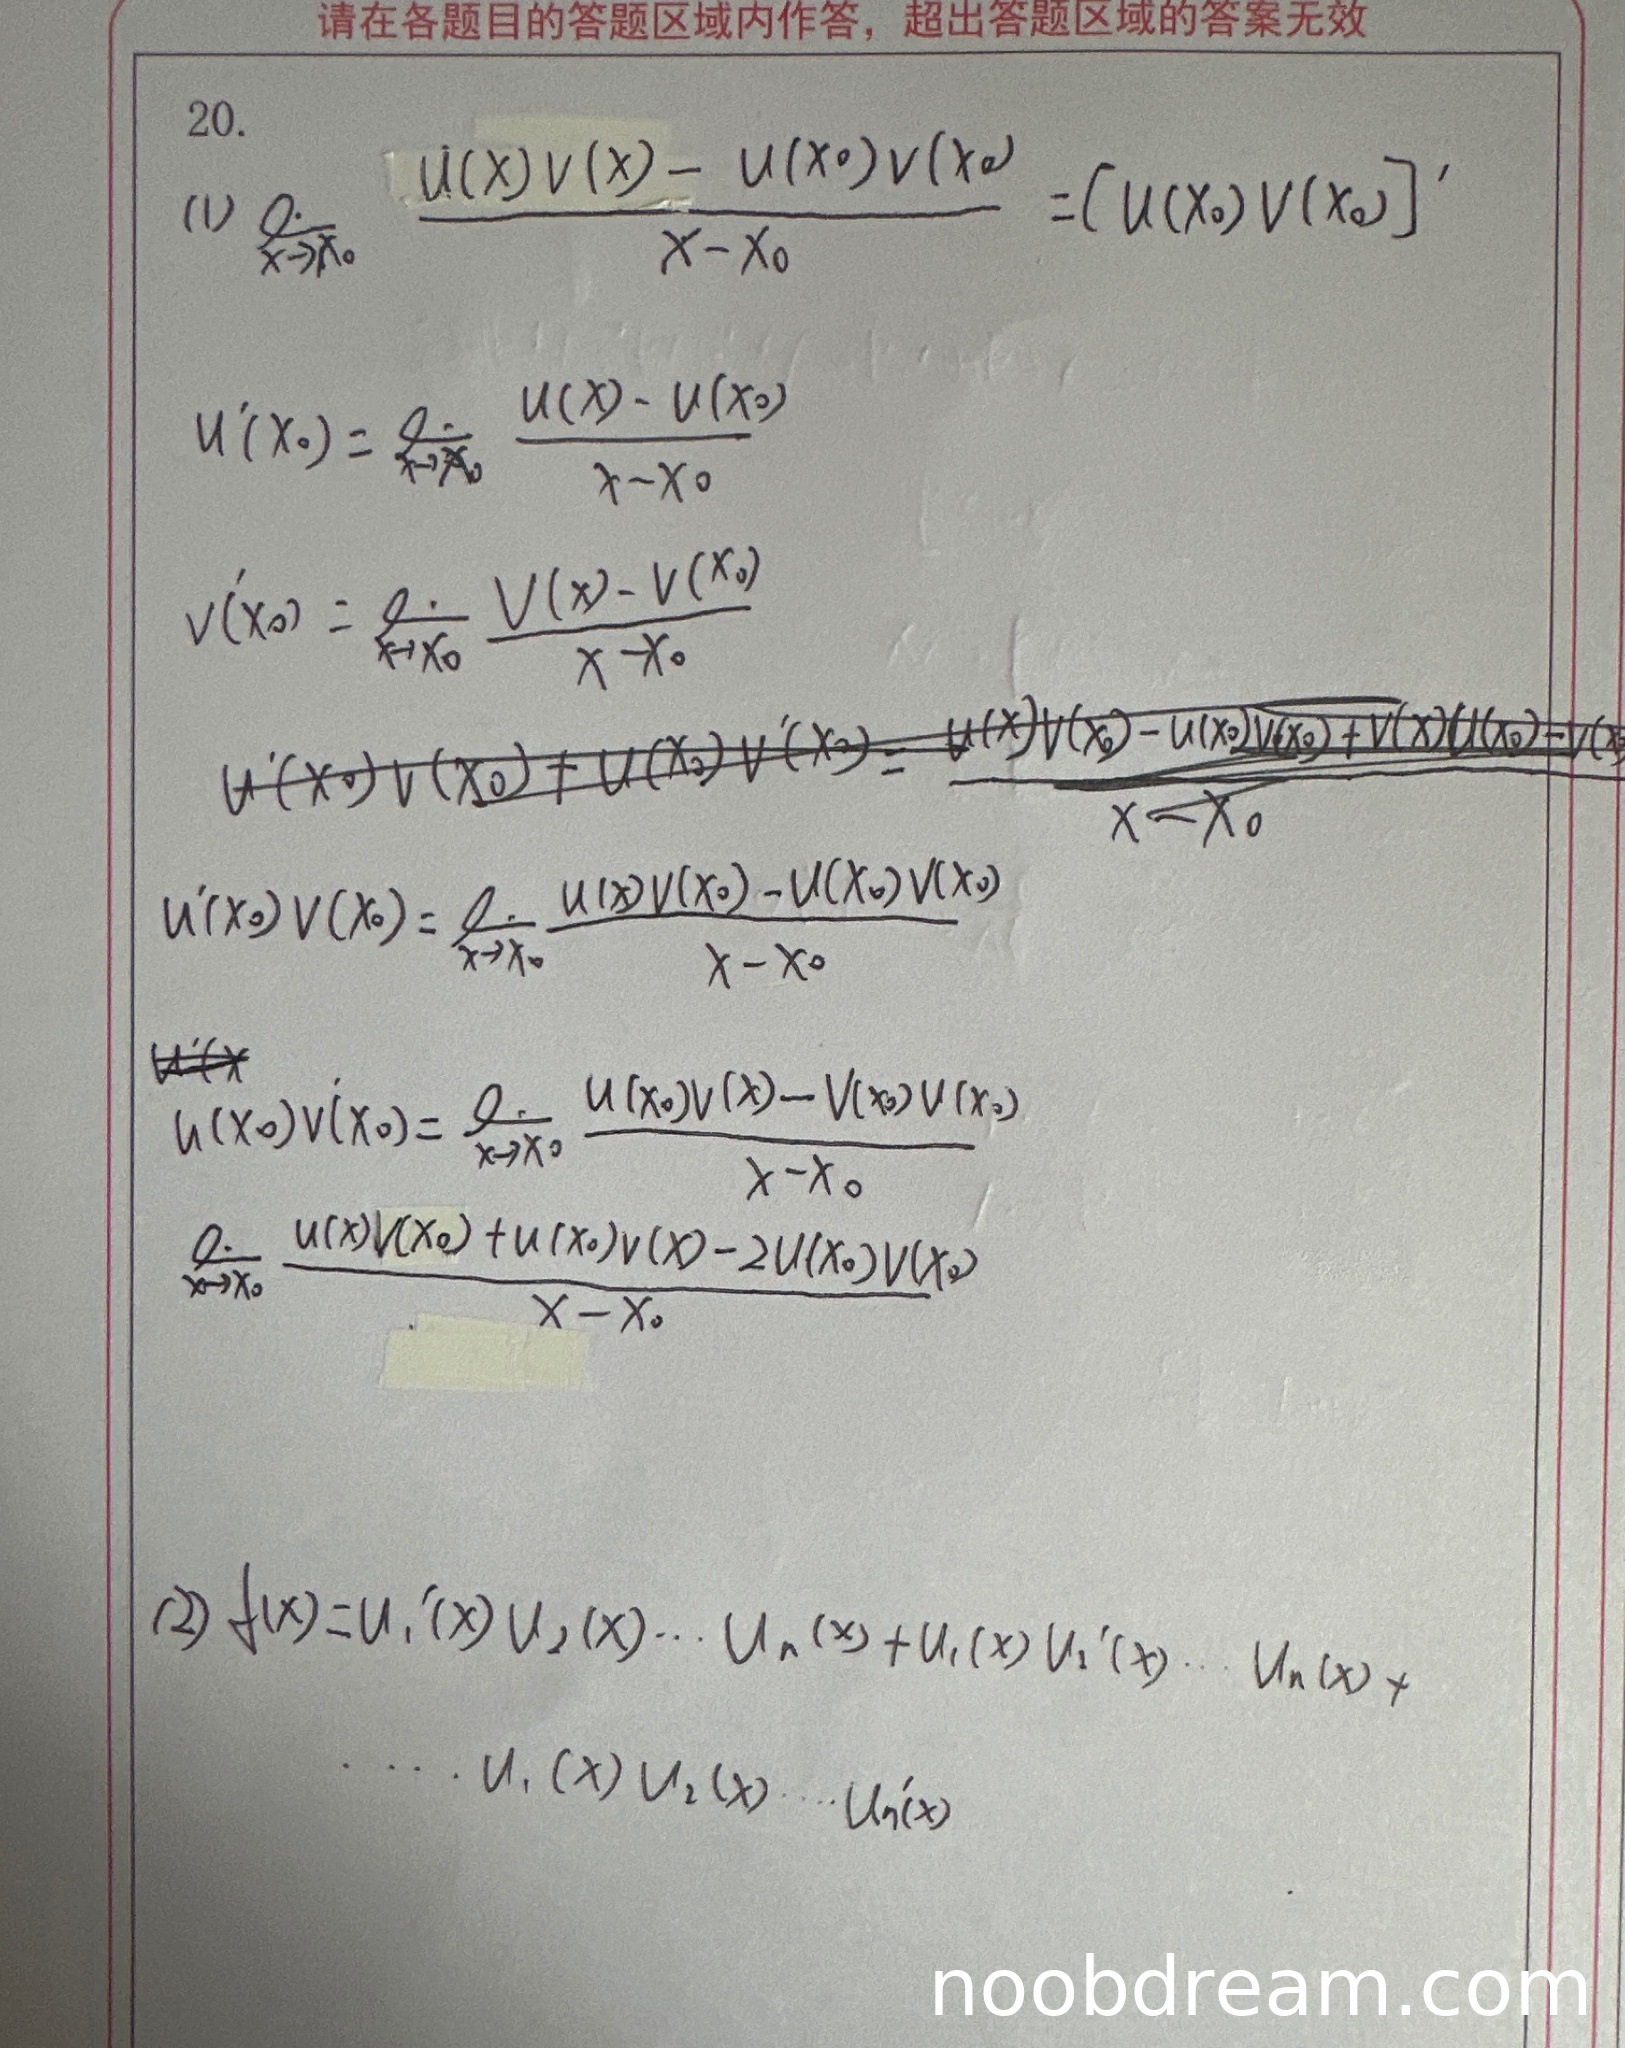 请在各题目的答题区域内作答，超出答题区域的答案无效
20.
(1) lim x→x₀ (u(x)v(x) - u(x₀)v(x₀)) / (x-x₀) = [u(x₀)v(x₀)]'
u'(x₀) = lim x→x₀ (u(x) - u(x₀)) / (x-x₀)
v'(x₀) = lim x→x₀ (v(x) - v(x₀)) / (x-x₀)
u'(x₀)v(x₀) = lim x→x₀ (u(x)v(x₀) - u(x₀)v(x₀)) / (x-x₀)
u'(x
u(x₀)v'(x₀) = lim x→x₀ (u(x₀)v(x) - v(x₀)u(x₀)) / (x-x₀)
lim x→x₀ (u(x)v(x₀) + u(x₀)v(x) - 2u(x₀)v(x₀)) / (x-x₀)
(2) f(x) = u₁'(x) u₂(x) ... uₙ(x) + u₁(x) u₂'(x) ... uₙ(x) +
..... u₁(x) u₂(x) .... uₙ'(x)
noobdream.com